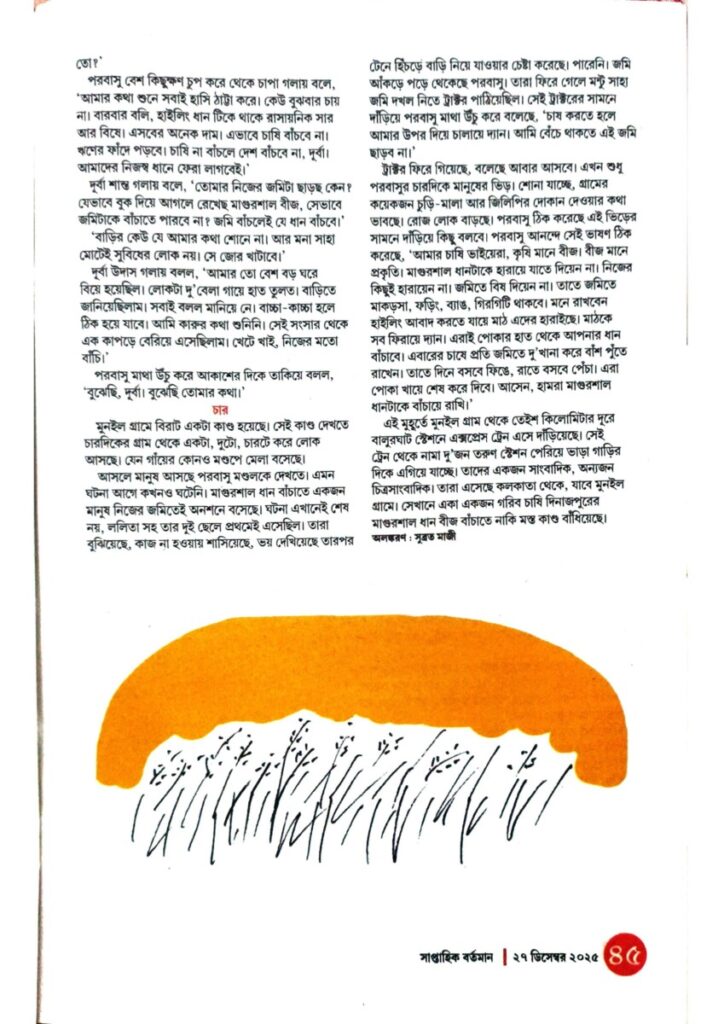 তো?'
পরবাসু বেশ কিছুক্ষণ চুপ করে থেকে চাপা গলায় বলে,
'আমার কথা শুনে সবাই হাসি ঠাট্টা করে। কেউ বুঝবার চায়
না। বারবার বলি, হাইলিং ধান টিকে থাকে রাসায়নিক সার
আর বিষে। এসবের অনেক দাম। এভাবে চাষি বাঁচবে না।
ঋণের ফাঁদে পড়বে। চাষি না বাঁচলে দেশ বাঁচবে না, দূর্বা।
আমাদের নিজস্ব ধানে ফেরা লাগবেই।'
দূর্বা শান্ত গলায় বলে, 'তোমার নিজের জমিটা ছাড়ছ কেন?
যেভাবে বুক দিয়ে আগলে রেখেছ মাগুরশাল বীজ, সেভাবে
জমিটাকে বাঁচাতে পারবে না? জমি বাঁচলেই যে ধান বাঁচবে।'
'বাড়ির কেউ যে আমার কথা শোনে না। আর মনা সাহা
মোটেই সুবিধের লোক নয়। সে জোর খাটাবে।'
দূর্বা উদাস গলায় বলল, 'আমার তো বেশ বড় ঘরে
বিয়ে হয়েছিল। লোকটা দু'বেলা গায়ে হাত তুলত। বাড়িতে
জানিয়েছিলাম। সবাই বলল মানিয়ে নে। বাচ্চা-কাচ্চা হলে
ঠিক হয়ে যাবে। আমি কারুর কথা শুনিনি। সেই সংসার থেকে
এক কাপড়ে বেরিয়ে এসেছিলাম। খেটে খাই, নিজের মতো
বাঁচি।'
পরবাসু মাথা উঁচু করে আকাশের দিকে তাকিয়ে বলল,
'বুঝেছি, দূর্বা। বুঝেছি তোমার কথা।'
চার
মুনইল গ্রামে বিরাট একটা কাণ্ড হয়েছে। সেই কাণ্ড দেখতে
চারদিকের গ্রাম থেকে একটা, দুটো, চারটে করে লোক
আসছে। যেন গাঁয়ের কোনও মণ্ডপে মেলা বসেছে।
আসলে মানুষ আসছে পরবাসু মণ্ডলকে দেখতে। এমন
ঘটনা আগে কখনও ঘটেনি। মাগুরশাল ধান বাঁচাতে একজন
মানুষ নিজের জমিতেই অনশনে বসেছে। ঘটনা এখানেই শেষ
নয়, ললিতা সহ তার দুই ছেলে প্রথমেই এসেছিল। তারা
বুঝিয়েছে, কাজ না হওয়ায় শাসিয়েছে, ভয় দেখিয়েছে তারপর
টেনে হিঁচড়ে বাড়ি নিয়ে যাওয়ার চেষ্টা করেছে। পারেনি। জমি
আঁকড়ে পড়ে থেকেছে পরবাসু। তারা ফিরে গেলে মন্টু সাহা
জমি দখল নিতে ট্রাক্টর পাঠিয়েছিল। সেই ট্রাক্টরের সামনে
দাঁড়িয়ে পরবাসু মাথা উঁচু করে বলেছে, 'চাষ করতে হলে
আমার উপর দিয়ে চালায়ে দ্যান। আমি বেঁচে থাকতে এই জমি
ছাড়ব না।'
ট্রাক্টর ফিরে গিয়েছে, বলেছে আবার আসবে। এখন শুধু
পরবাসুর চারদিকে মানুষের ভিড়। শোনা যাচ্ছে, গ্রামের
কয়েকজন চুড়ি-মালা আর জিলিপির দোকান দেওয়ার কথা
ভাবছে। রোজ লোক বাড়ছে। পরবাসু ঠিক করেছে এই ভিড়ের
সামনে দাঁড়িয়ে কিছু বলবে। পরবাসু আনন্দে সেই ভাষণ ঠিক
করেছে, 'আমার চাষি ভাইয়েরা, কৃষি মানে বীজ। বীজ মানে
প্রকৃতি। মাগুরশাল ধানটাকে হারায়ে যাতে দিয়েন না। নিজের
কিছুই হারায়েন না। জমিতে বিষ দিয়েন না। তাতে জমিতে
মাকড়সা, ফড়িং, ব্যাঙ, গিরগিটি থাকবে। মনে রাখবেন
হাইলিং আবাদ করতে যায়ে মাঠ এদের হারাইছে। মাঠকে
সব ফিরায়ে দ্যান। এরাই পোকার হাত থেকে আপনার ধান
বাঁচাবে। এবারের চাষে প্রতি জমিতে দু'খানা করে বাঁশ পুঁতে
রাখেন। তাতে দিনে বসবে ফিঙে, রাতে বসবে পেঁচা। এরা
পোকা খায়ে শেষ করে দিবে। আসেন, হামরা মাগুরশাল
ধানটাকে বাঁচায়ে রাখি।'
এই মুহূর্তে মুনইল গ্রাম থেকে তেইশ কিলোমিটার দূরে
বালুরঘাট স্টেশনে এক্সপ্রেস ট্রেন এসে দাঁড়িয়েছে। সেই
ট্রেন থেকে নামা দু'জন তরুণ স্টেশন পেরিয়ে ভাড়া গাড়ির
দিকে এগিয়ে যাচ্ছে। তাদের একজন সাংবাদিক, অন্যজন
চিত্রসাংবাদিক। তারা এসেছে কলকাতা থেকে, যাবে মুনইল
গ্রামে। সেখানে একা একজন গরিব চাষি দিনাজপুরের
মাগুরশাল ধান বীজ বাঁচাতে নাকি মস্ত কাণ্ড বাঁধিয়েছে।
অলঙ্করণ : সুব্রত মাজী
সাপ্তাহিক বর্তমান | ২৭ ডিসেম্বর ২০২৫ ৪৫